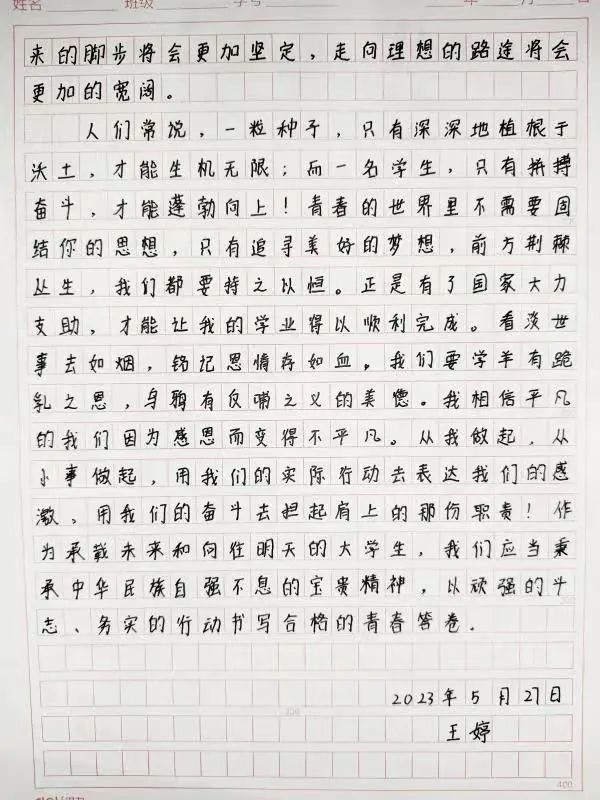 姓名 班级 学号 年 月 日
来的脚步将会更加坚定，走向理想的路途将会
更加的宽阔。
人们常说，一粒种子，只有深深地植根于
沃土，才能生机无限；而一名学生，只有拼搏
奋斗，才能蓬勃向上！青春的世界里不需要固
结你的思想，只有追寻美好的梦想，前方荆棘
丛生，我们都要持之以恒。正是有了国家大力
支助，才能让我的学业得以顺利完成。看淡世
事去如烟，铭记恩情存如血，我们要学羊有跪
乳之思，乌鸦有反哺之义的美德。我相信平凡
的我们因为感恩而变得不平凡。从我做起，从
小事做起，用我们的实际行动去表达我们的感
激，用我们的奋斗去担起肩上的那份职责！作
为承载未来和向往明天的大学生，我们应当秉
承中华民族自强不息的宝贵精神，以顽强的斗
志、务实的行动书写合格的青春答卷．
2023年5月27日
王婷
400